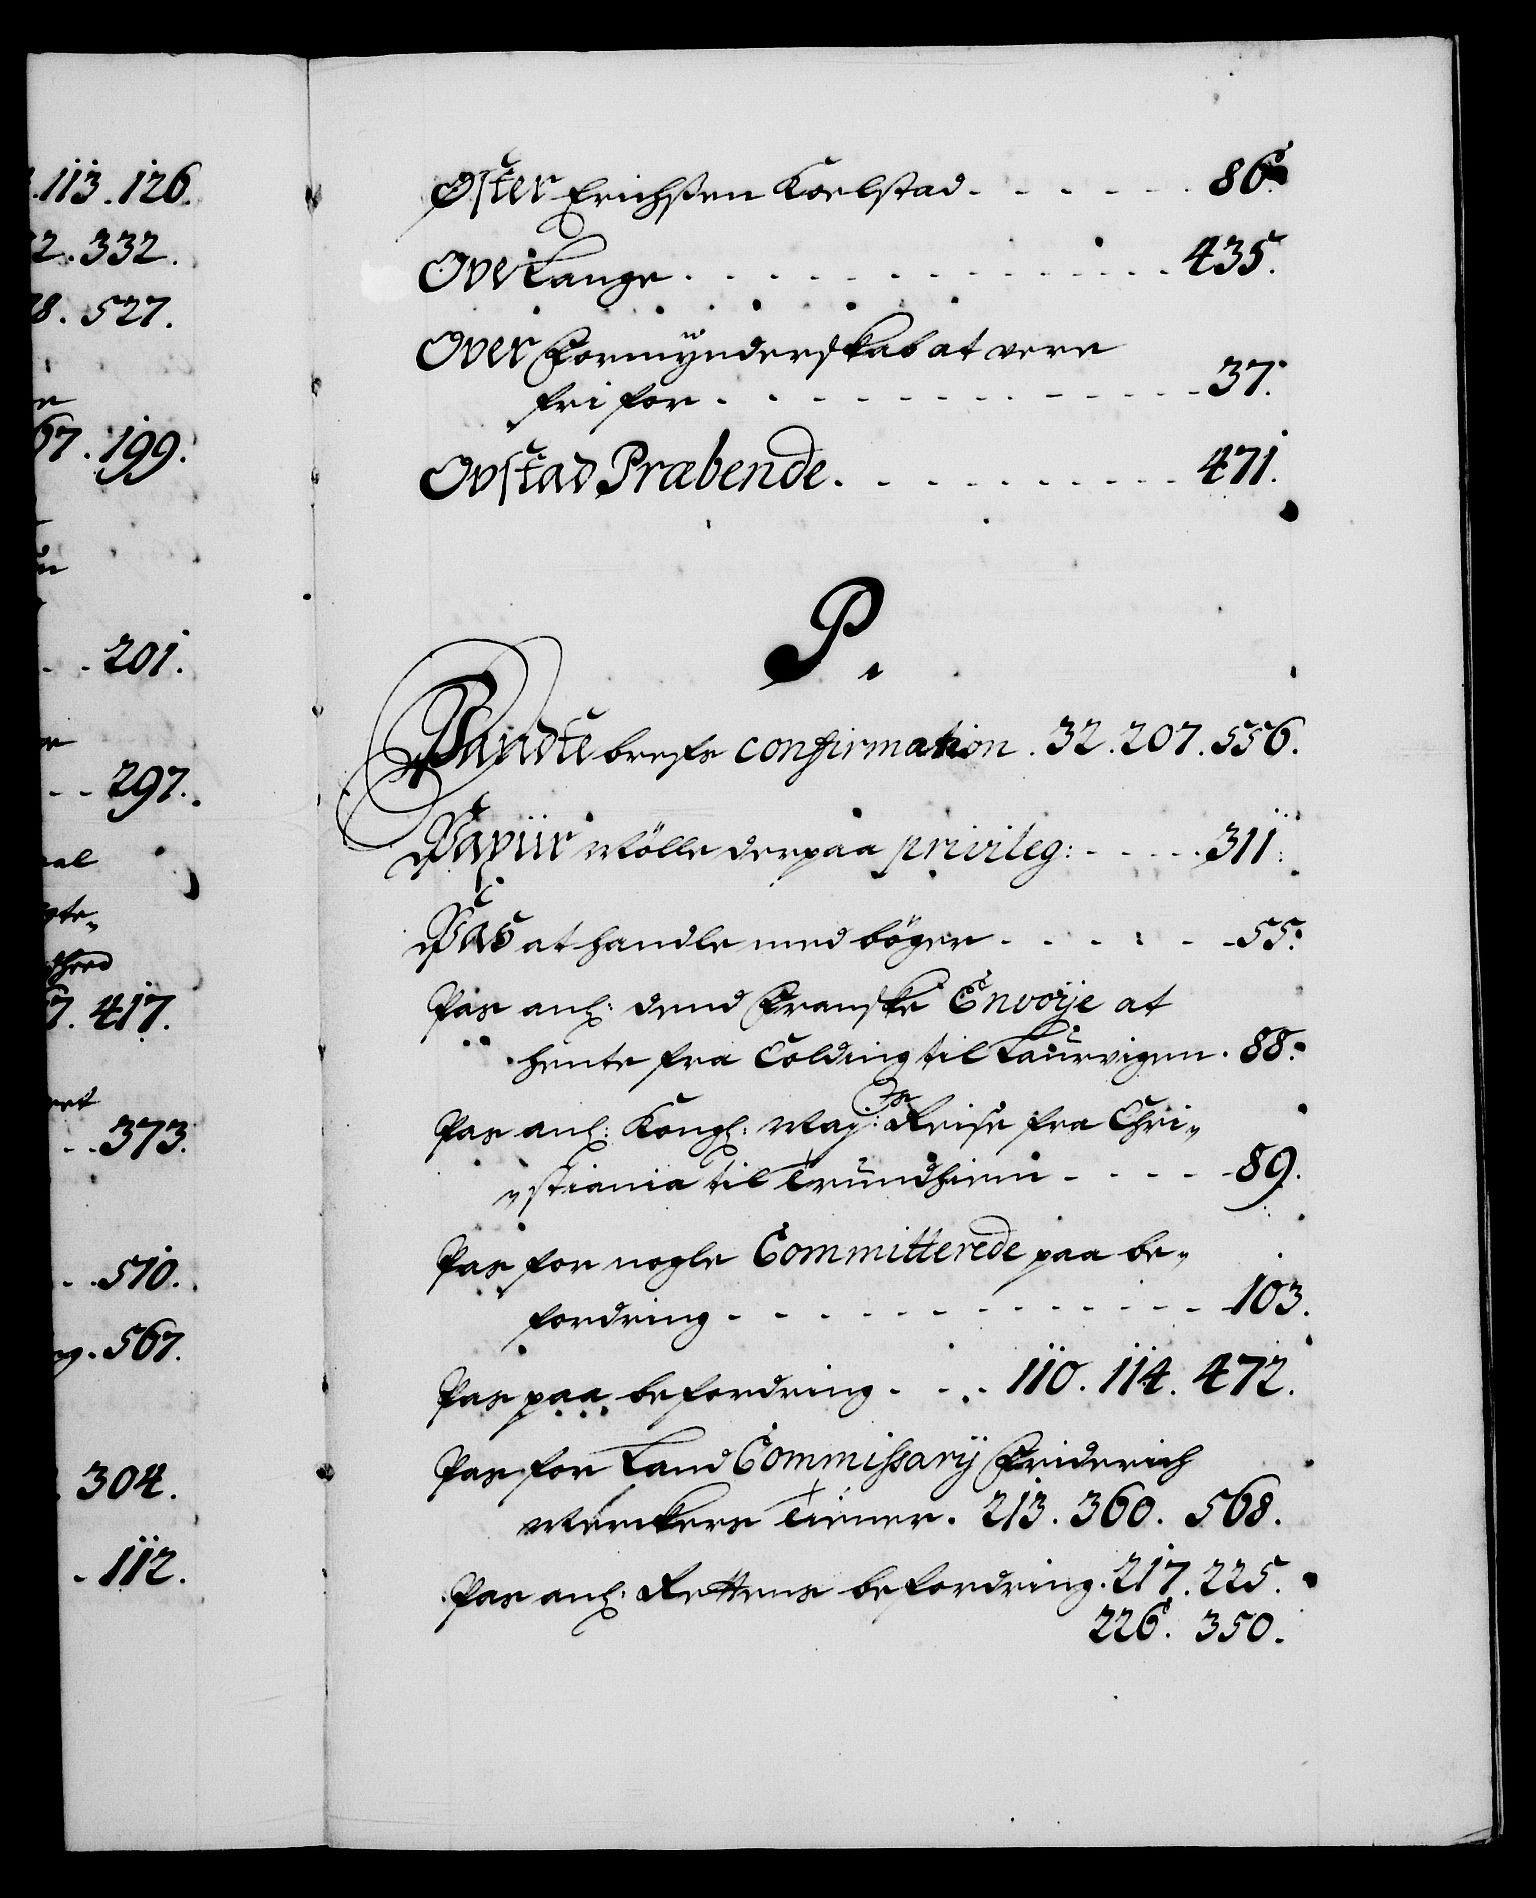 113. 126.
2. 332.
8. 527.
67. 199.
201.
297.
al
417.
373.
510.
567.
304.
112.
Oster Erichsen Koelstad. 86.
Ove Lange. 435.
Over Formÿnderskab at vere
fri for. 37.
Ovstad Præbende. 471.
P.
Pandte brefs confirmation. 32. 207. 556.
Papiir Mölle derpaa privileg: 311.
Pas at handle med böger. 55.
Pas anl: dend Franske Envoÿe at
hente fra Colding til Laurvigen. 88.
Pas anl: Kongl: Maÿ:ts Reise fra Chri„
„stiania til Trundhiem 89.
Pas for nogle Committerede paa be„
fordring 103.
Pas paa befordring. 110. 114. 472.
Pas for Land Commissarÿ Friderich
Merckers Tiener. 213. 360. 568.
Pas anl: Rettens befordring. 217. 225.
226. 350.